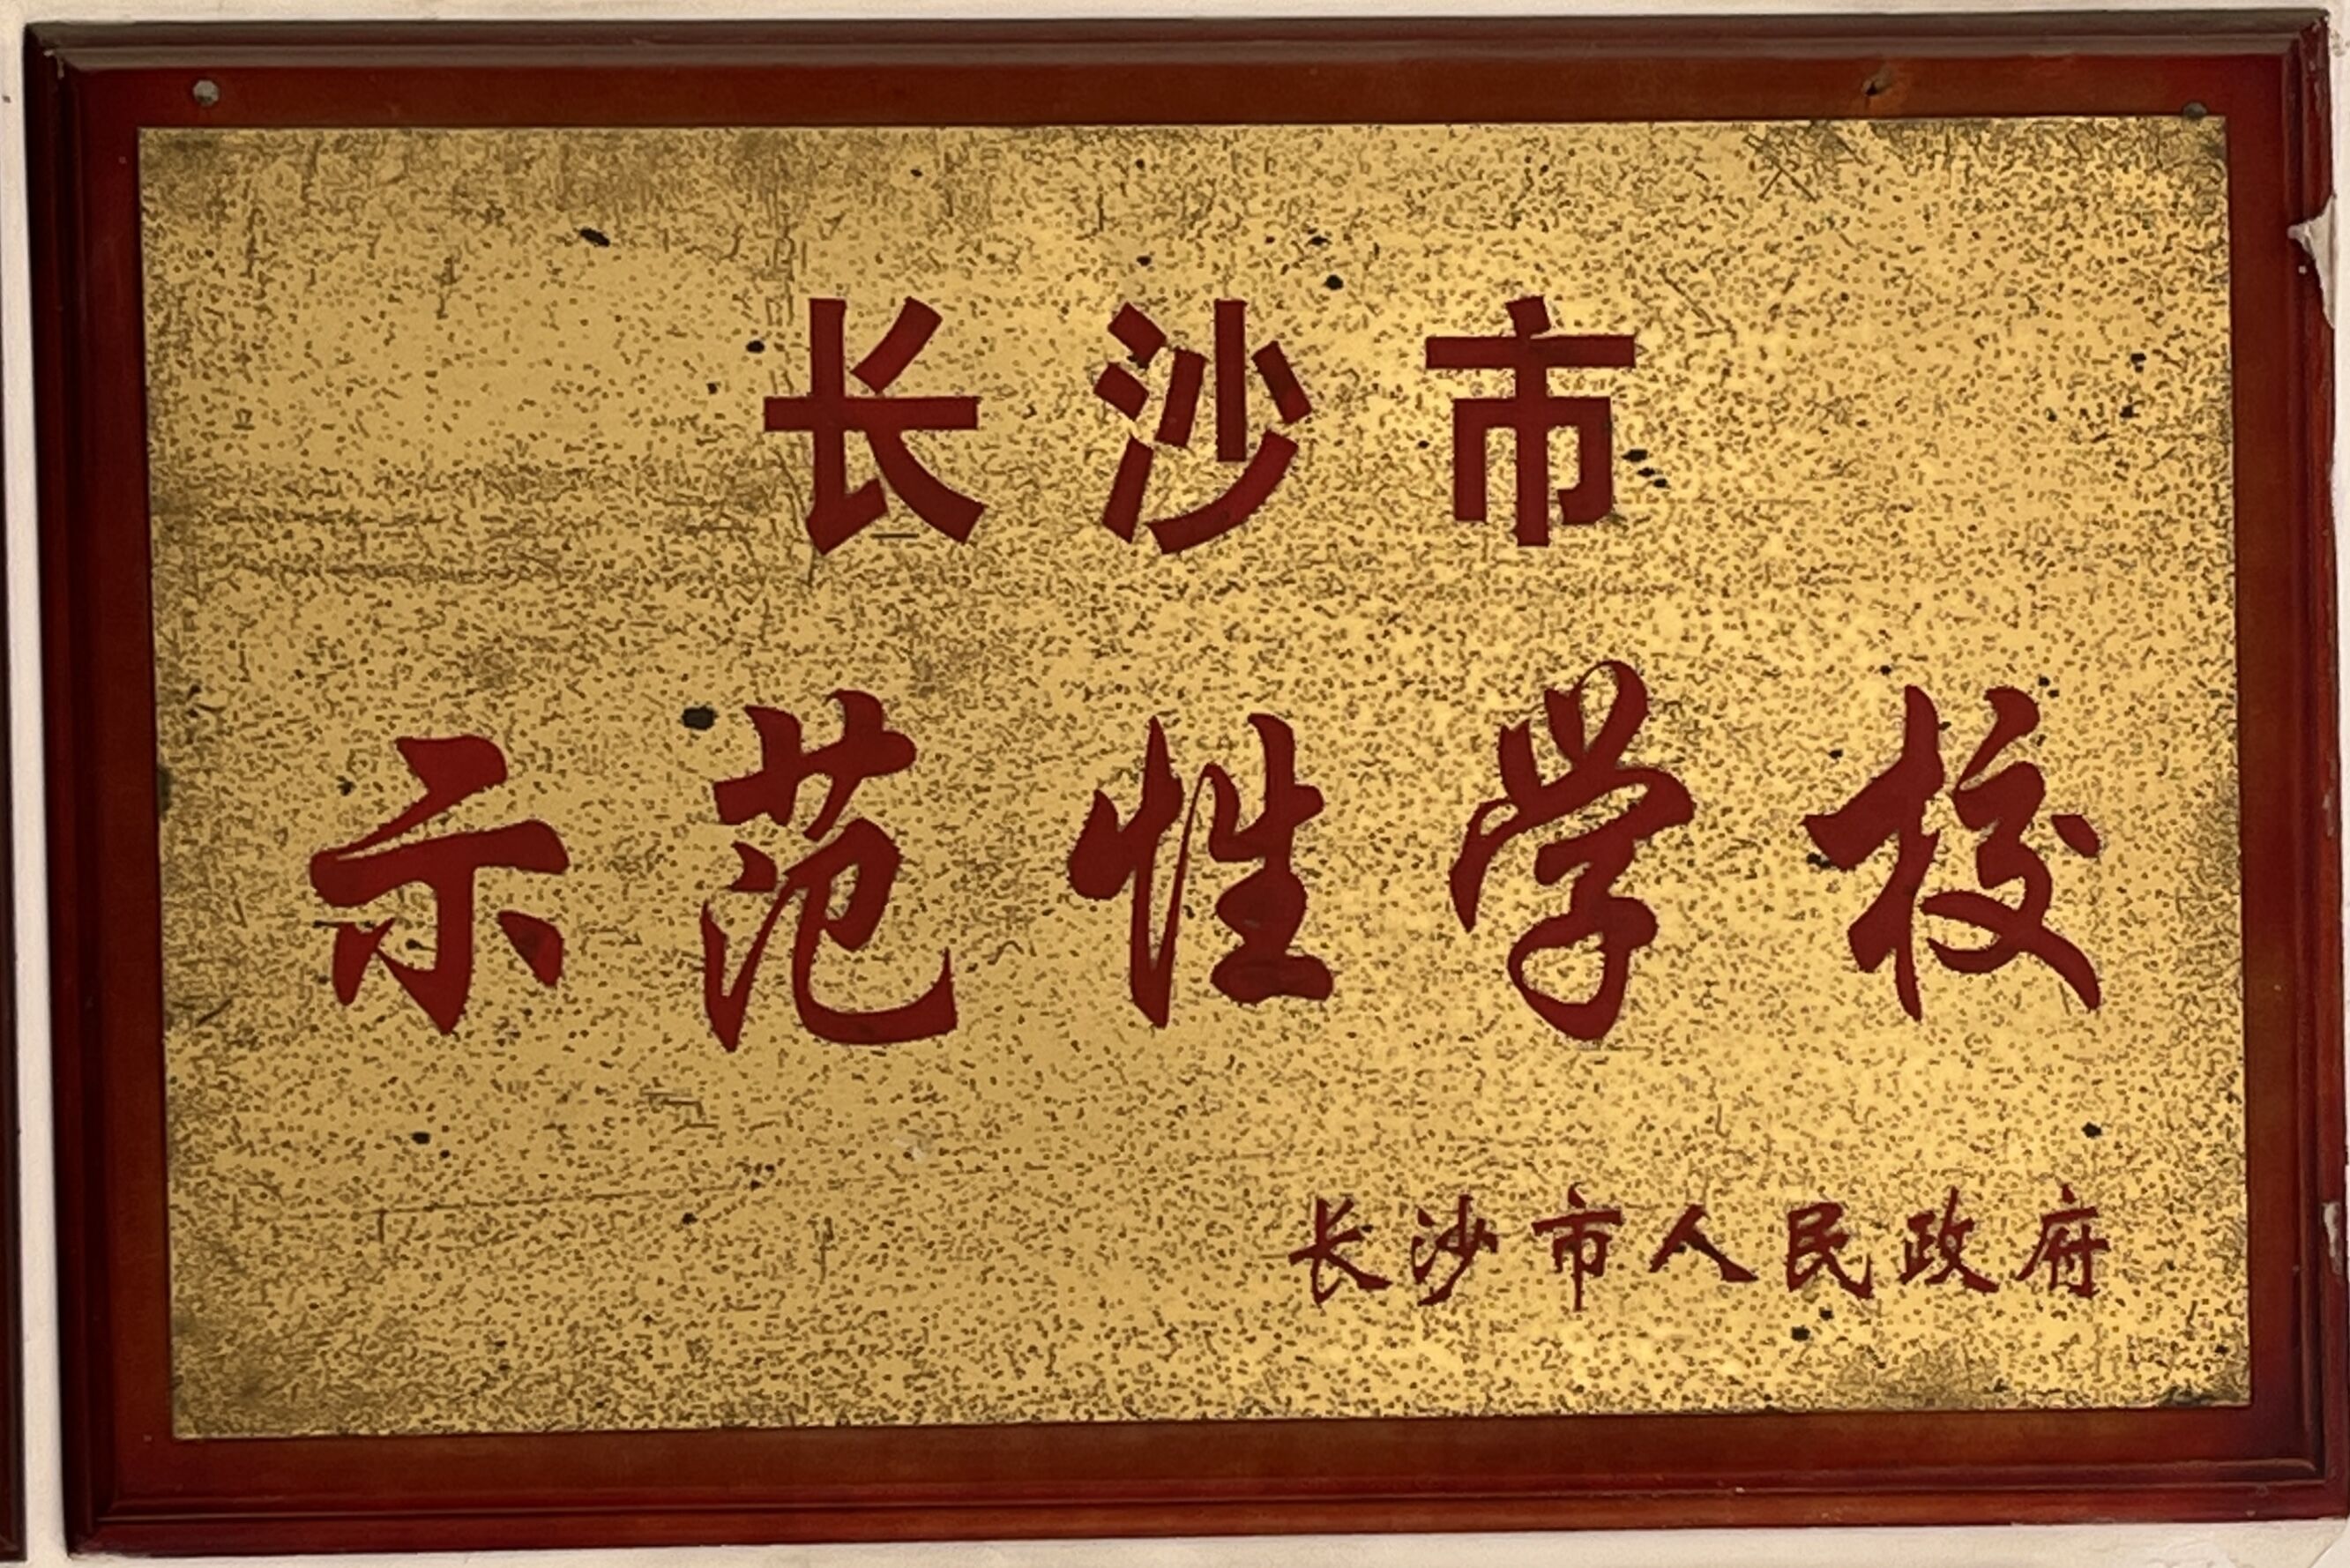 长沙市
示范性学校
长沙市人民政府